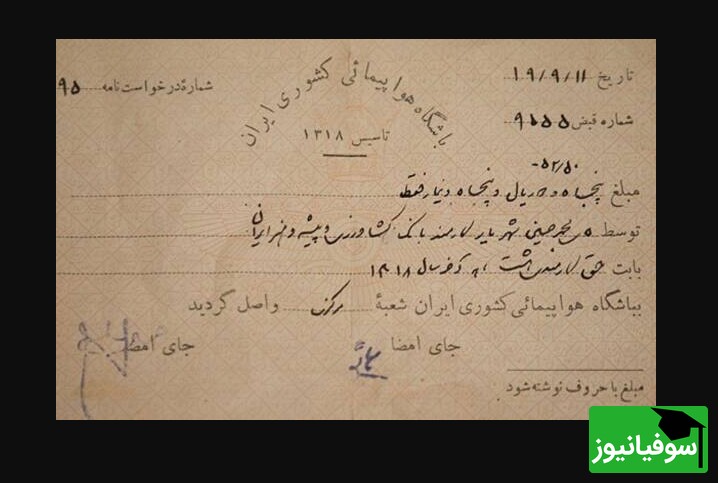 باشگاه هواپیمائی کشوری ایران
تاسیس ۱۳۱۸
تاریخ ۱۹/۹/۱۱
شماره درخواست نامه ۹۵
شماره قبض ۹۱۵۵
۵۲/۵۰
مبلغ پنجاه و دو ریال و پنجاه دینار فقط
توسط محمد حسین شهریار کارمند بانک کشاورزی و پیشه و هنر ایران
بابت حق کارمندی هشت ماهه آخر سال ۱۳۱۸
بباشگاه هواپیمائی کشوری ایران شعبهٔ مرکز واصل گردید
جای امضا
جای امضا
مبلغ با حروف نوشته شود
سوفیانیوز